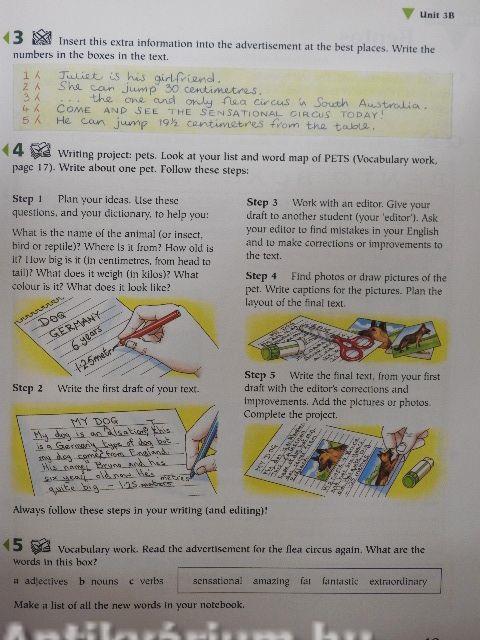 Unit 3B
3 Insert this extra information into the advertisement at the best places. Write the
numbers in the boxes in the text.
1 Juliet is his girlfriend.
2 She can jump 30 centimetres.
3 ... the one and only flea circus in South Australia.
4 COME AND SEE THE SENSATIONAL CIRCUS TODAY!
5 He can jump 19½ centimetres from the table.
4 Writing project: pets. Look at your list and word map of PETS (Vocabulary work,
page 17). Write about one pet. Follow these steps:
Step 1 Plan your ideas. Use these
questions, and your dictionary, to help you:
What is the name of the animal (or insect,
bird or reptile)? Where is it from? How old is
it? How big is it (in centimetres, from head to
tail)? What does it weigh (in kilos)? What
colour is it? What does it look like?
DOG
GERMANY
6 years
1·25metr
Step 2 Write the first draft of your text.
MY DOG
My dog is an alsation, this
is a Germany type of dog but
my dog comes from England.
His name Bruno and hes
six year old now. He's metres
quite big – 1·25 meters
Step 3 Work with an editor. Give your
draft to another student (your 'editor'). Ask
your editor to find mistakes in your English
and to make corrections or improvements to
the text.
Step 4 Find photos or draw pictures of the
pet. Write captions for the pictures. Plan the
layout of the final text.
Step 5 Write the final text, from your first
draft with the editor's corrections and
improvements. Add the pictures or photos.
Complete the project.
Always follow these steps in your writing (and editing)!
5 Vocabulary work. Read the advertisement for the flea circus again. What are the
words in this box?
a adjectives b nouns c verbs
sensational amazing fat fantastic extraordinary
Make a list of all the new words in your notebook.
Antikvárium.hu